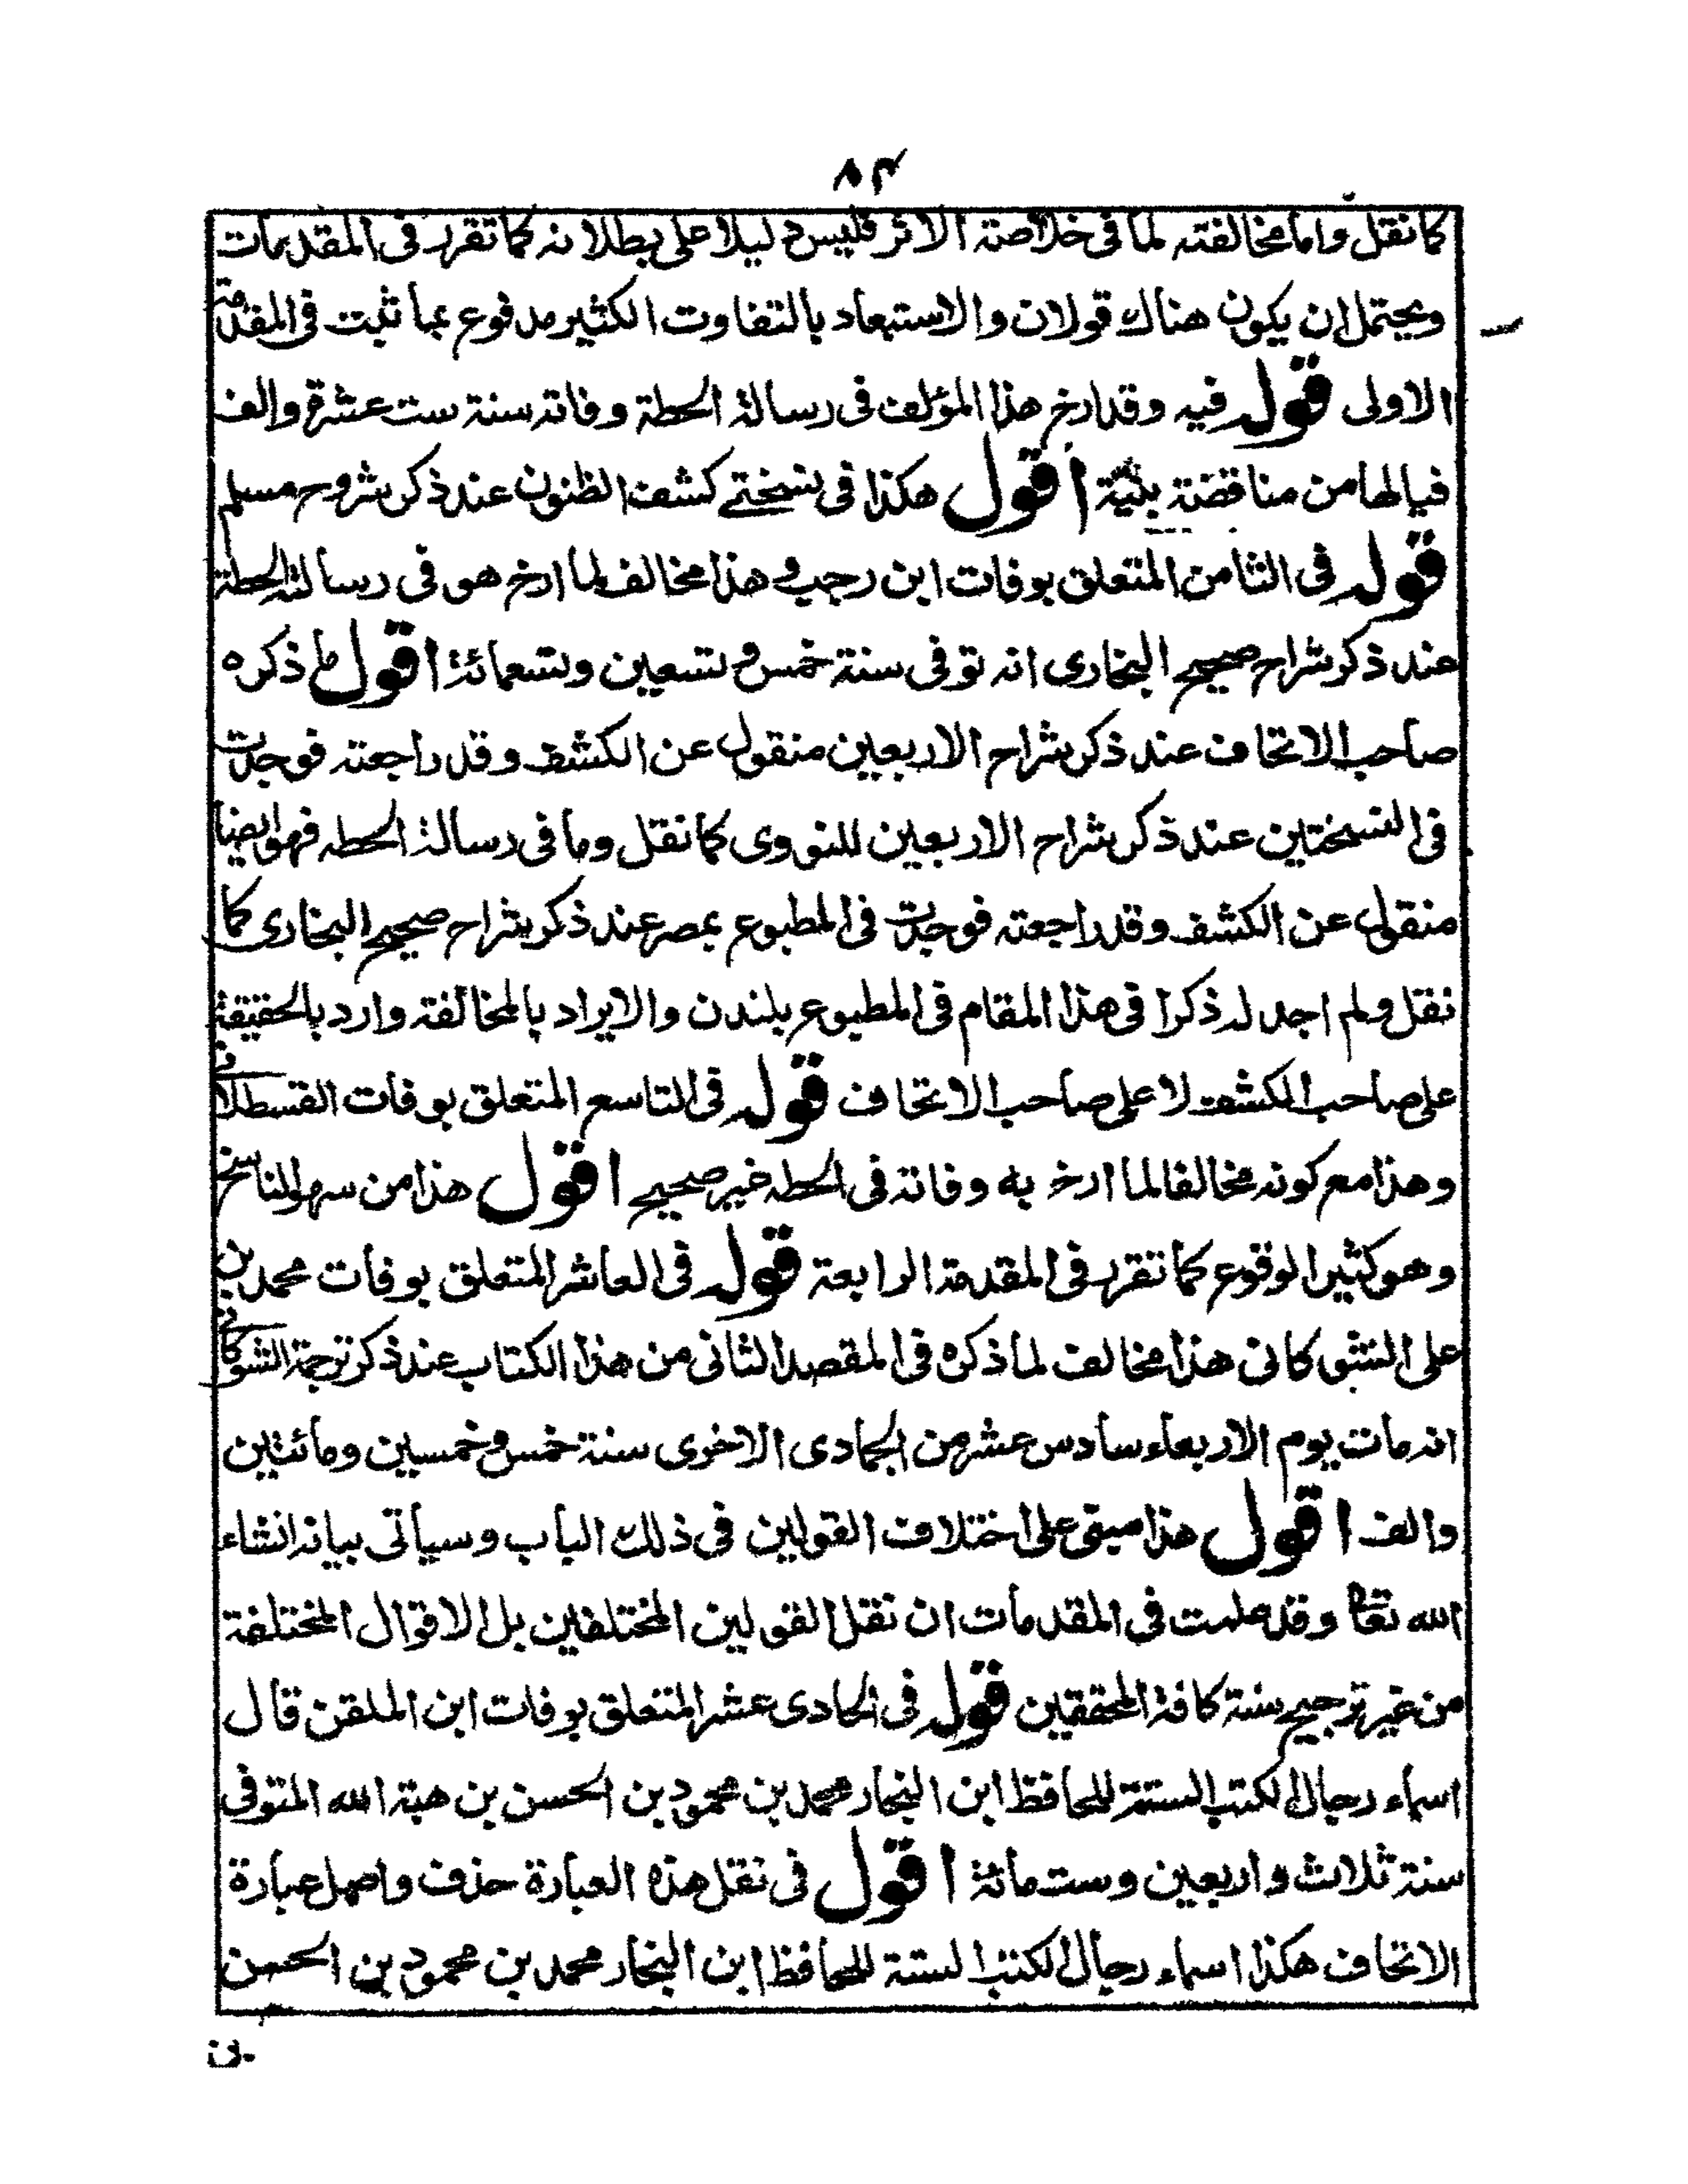 ٨٤
كما نقل واما مخالفته لما فى خلاصة الاثر فليس دليلا على بطلانه كما تقرر فى المقدمات
ويحتمل ان يكون هناك قولان والاستبعاد بالتفاوت الكثير مدفوع بما ثبت فى المقدمة
الاولى قوله فيه وقد ارخ هذا المؤلف فى رسالة الحطة وفاته سنة ست عشرة والف
فيا لها من مناقضة بينة اقول هكذا فى نسختے كشف الظنون عند ذكر شروح مسلم
قوله فى الثامن المتعلق بوفات ابن رجب وهذا مخالف لما ارخ هو فى رسالة الحطة
عند ذكر شراح صحيح البخارى انه توفى سنة خمس وتسعين وتسعمائة اقول ما ذكره
صاحب الاتحاف عند ذكر شراح الاربعين منقول عن الكشف وقد راجعته فوجدت
فى النسختين عند ذكر شراح الاربعين للنووى كما نقل وما فى رسالة الحطه فهو ايضا
منقول عن الكشف وقد راجعته فوجدت فى المطبوع بمصر عند ذكر شراح صحيح البخارى كما
نقل ولم اجد له ذكرا فى هذا المقام فى المطبوع بلندن والايراد بالمخالفة وارد بالحقيقة
على صاحب الكشف لا على صاحب الاتحاف قوله فى التاسع المتعلق بوفات القسطلانے
وهذا مع كونه مخالفا لما ارخ به وفاته فى الحطه غير صحيح اقول هذا من سهو الناسخ
وهو كثير الوقوع كما تقرر فى المقدمة الرابعة قوله فى العاشر المتعلق بوفات محمد بن
على الشوكانى هذا مخالف لما ذكره فى المقصد الثانى من هذا الكتاب عند ذكر ترجمة الشوكانے
انه مات يوم الاربعاء سادس عشر من الجمادى الاخرى سنة خمس وخمسين ومائتين
والف اقول هذا مبنى على اختلاف القولين فى ذلك الباب وسيأتى بيانه انشاء
الله تعالى وقد علمت فى المقدمات ان نقل القولين المختلفين بل الاقوال المختلفة
من غير ترجيح سنة كافة المحققين قوله فى الحادى عشر المتعلق بوفات ابن الملقن قال
اسماء رجال الكتب الستة للحافظ ابن النجار محمد بن محمود بن الحسن بن هبة الله المتوفى
سنة ثلاث واربعين وست مائة اقول فى نقل هذه العبارة حذف واصل عبارة
الاتحاف هكذا اسماء رجال الكتب الستة للحافظ ابن النجار محمد بن محمود بن الحسن
بن